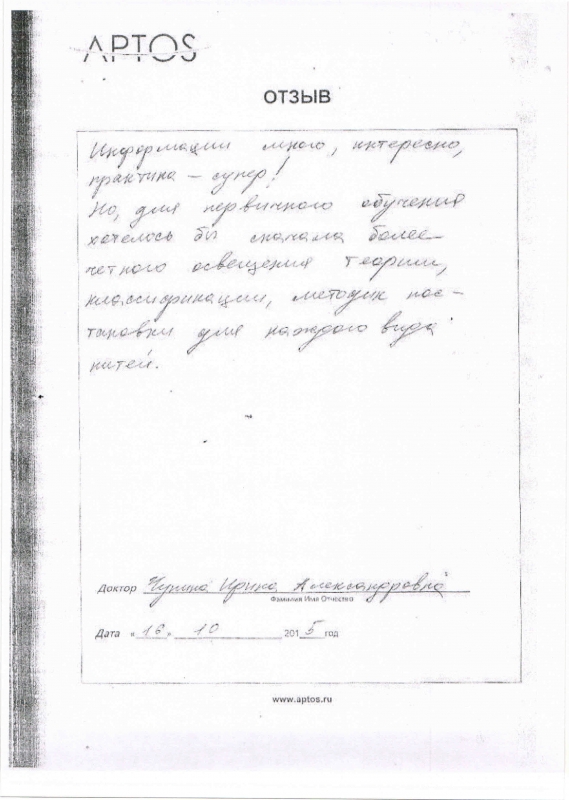 APTOS
ОТЗЫВ
Информации много, интересно,
практика – супер!
Но, для первичного обучения
хотелось бы сначала более
четкого освещения теории,
классификации, методик пос-
тановки для каждого вида
нитей.
Доктор Ирина Александровна
Фамилия Имя Отчество
Дата «16» 10 2015 год
www.aptos.ru